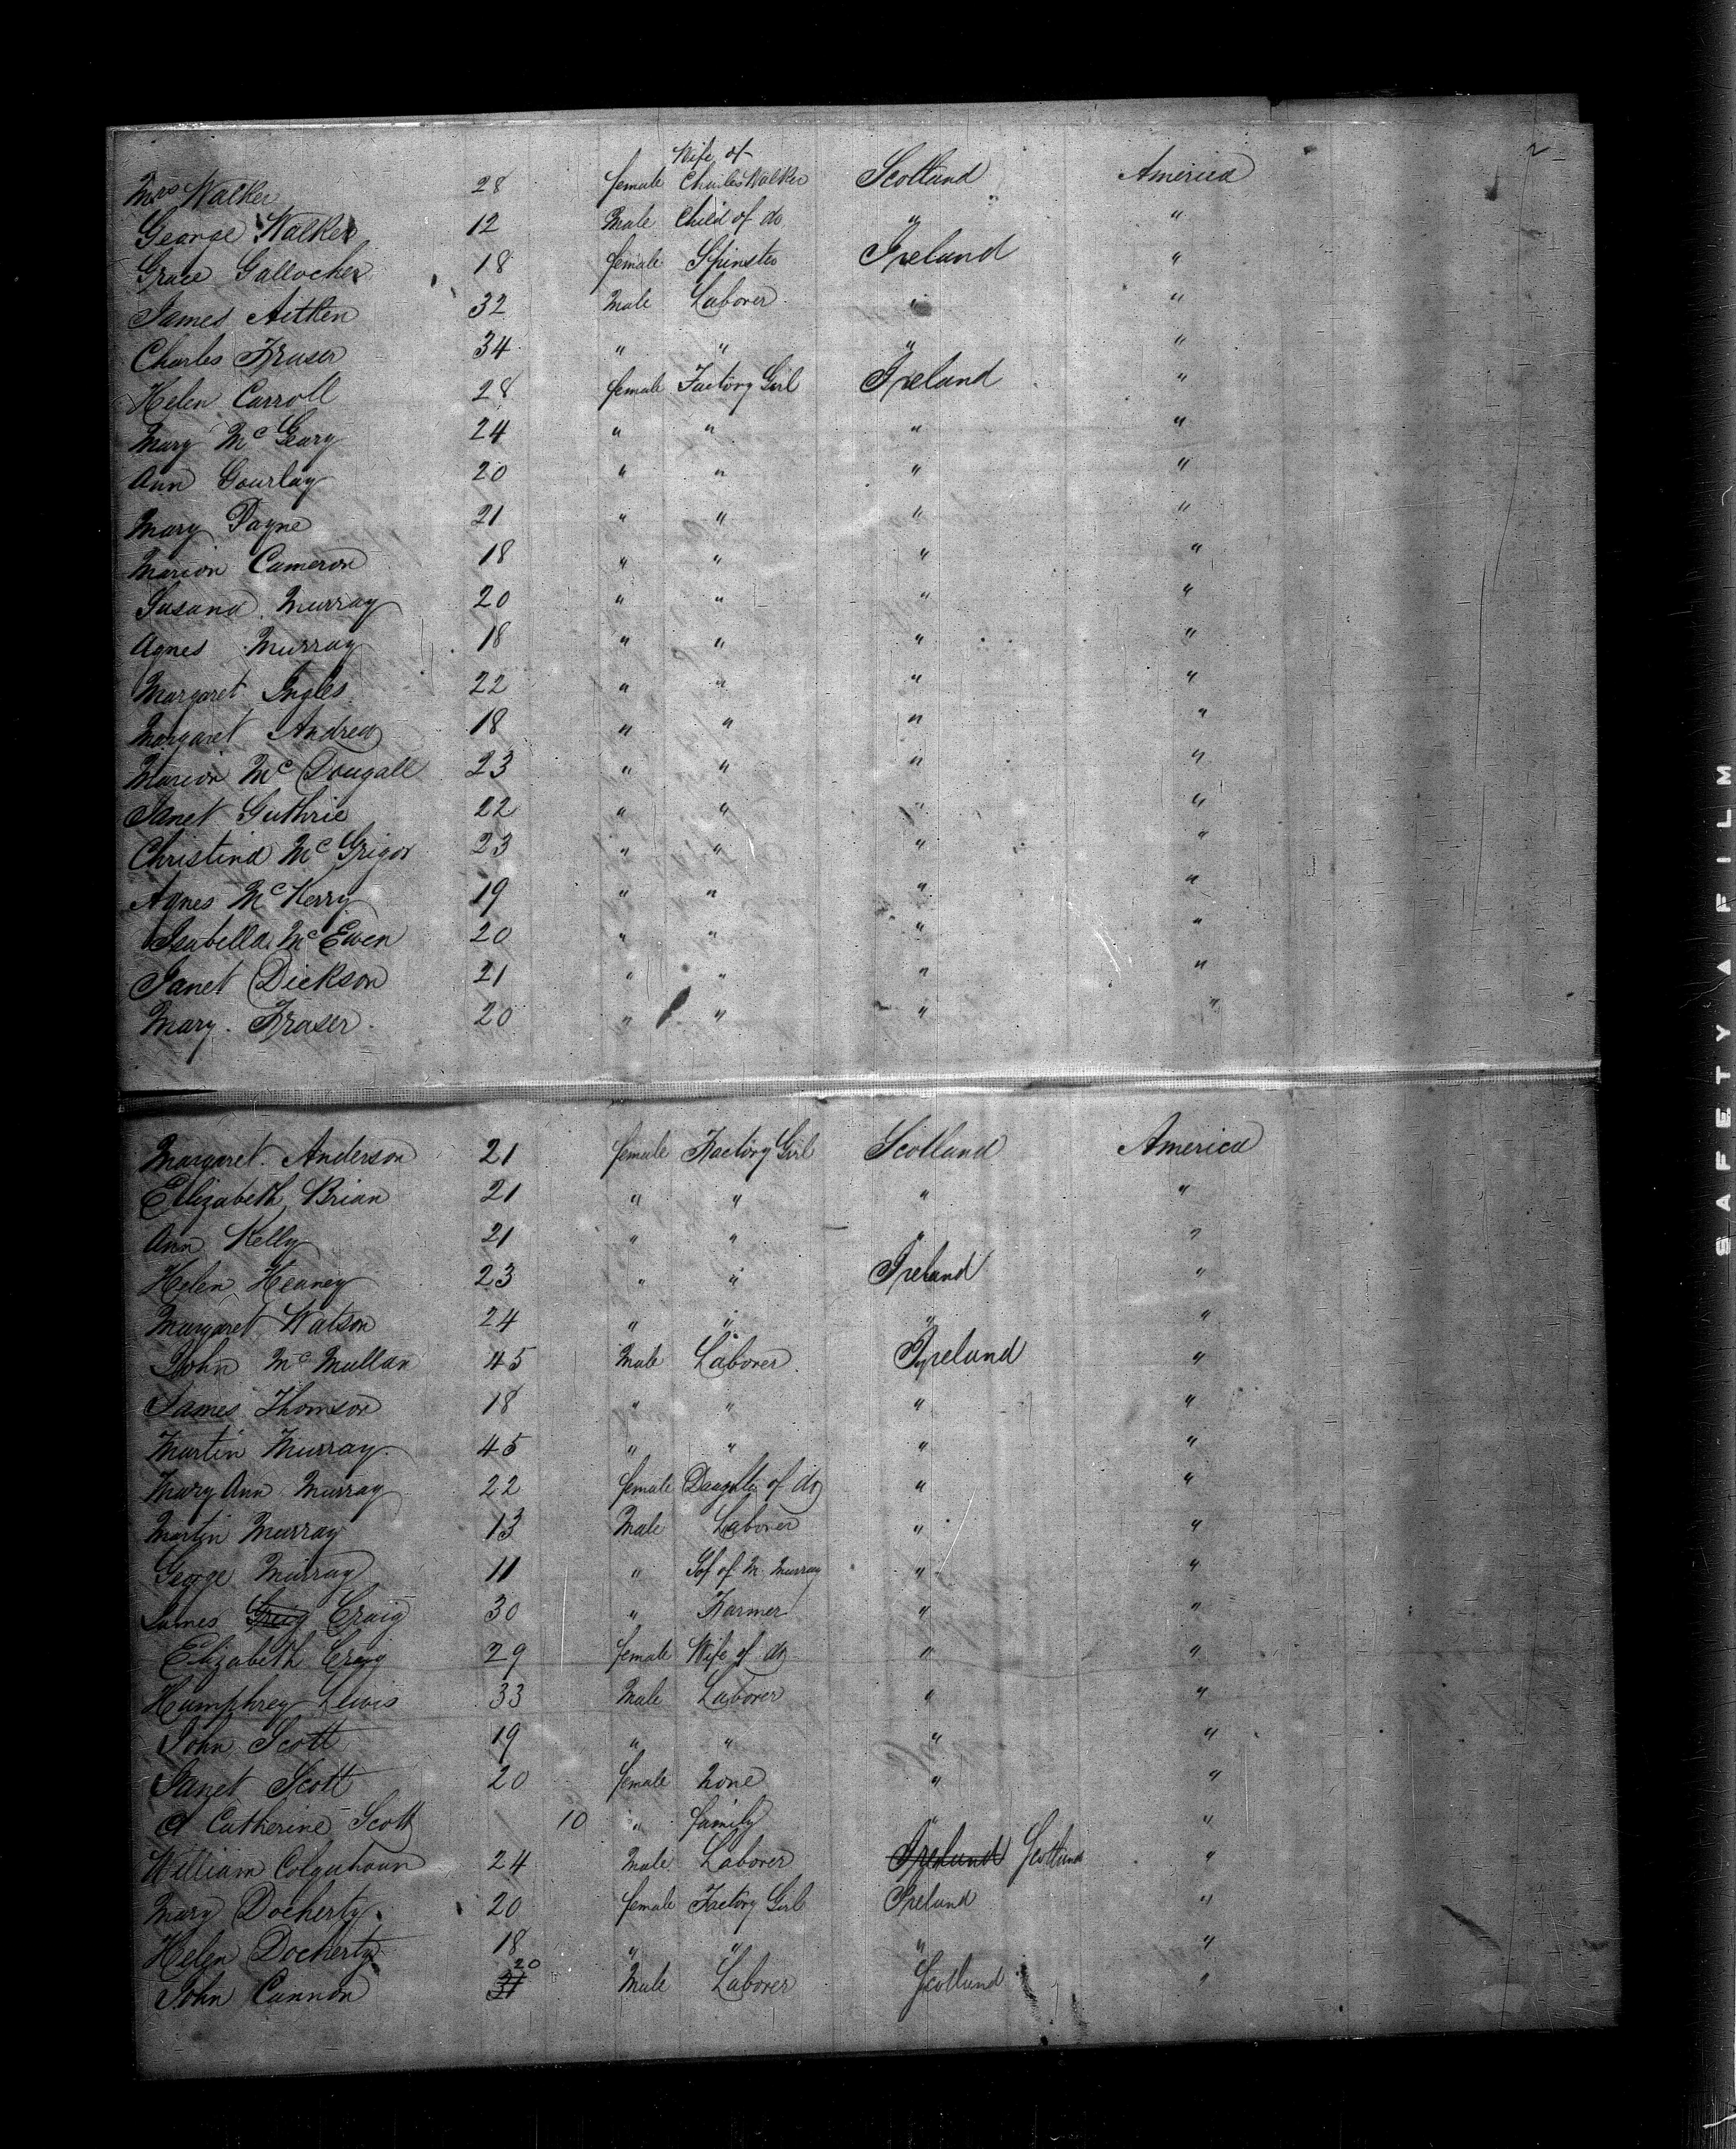 2
Wife of
Mrs Walker 28 female Charles Walker Scotland America
George Walker 12 Male Child of do " "
Grace Gallocher 18 female Spinster Ireland "
James Aitken 32 Male Laborer " "
Charles Fraser 34 " " " "
Helen Carroll 28 female Factory Girl Ireland "
Mary McGeary 24 " " " "
Ann Gourlay 20 " " " "
Mary Payne 21 " " " "
Marion Cameron 18 " " " "
Susana Murray 20 " " " "
Agnes Murray 18 " " " "
Margaret Ingles 22 " " " "
Margaret Andrew 18 " " " "
Marion McDougall 23 " " " "
Janet Guthrie 22 " " " "
Christina McGrigor 23 " " " "
Agnes McKerry 19 " " " "
Isabella McEwen 20 " " " "
Janet Dickson 21 " " " "
Mary Fraser 20 " " " "
Margaret Anderson 21 female Factory Girl Scotland America
Elizabeth Brian 21 " " " "
Ann Kelly 21 " " " "
Helen Heaney 23 " " Ireland "
Margaret Watson 24 " " " "
John McMullan 45 Male Laborer Ireland "
James Thomson 18 " " " "
Martin Murray 45 " " " "
Mary Ann Murray 22 female Daughter of do " "
Martin Murray 13 Male Laborer " "
George Murray 11 " Sof of M Murray " "
James Greig Craig 30 " Farmer " "
Elizabeth Craig 29 female Wife of do " "
Humphrey Lewis 33 Male Laborer " "
John Scott 19 " " " "
Janet Scott 20 female None " "
Catherine Scott 10 " family " "
William Colquhoun 24 Male Laborer Ireland Scotland "
Mary Docherty 20 female Factory Girl Ireland "
Helen Docherty 18 " " " "
John Cannon 20 Male Laborer Scotland "
SAFETY A FILM